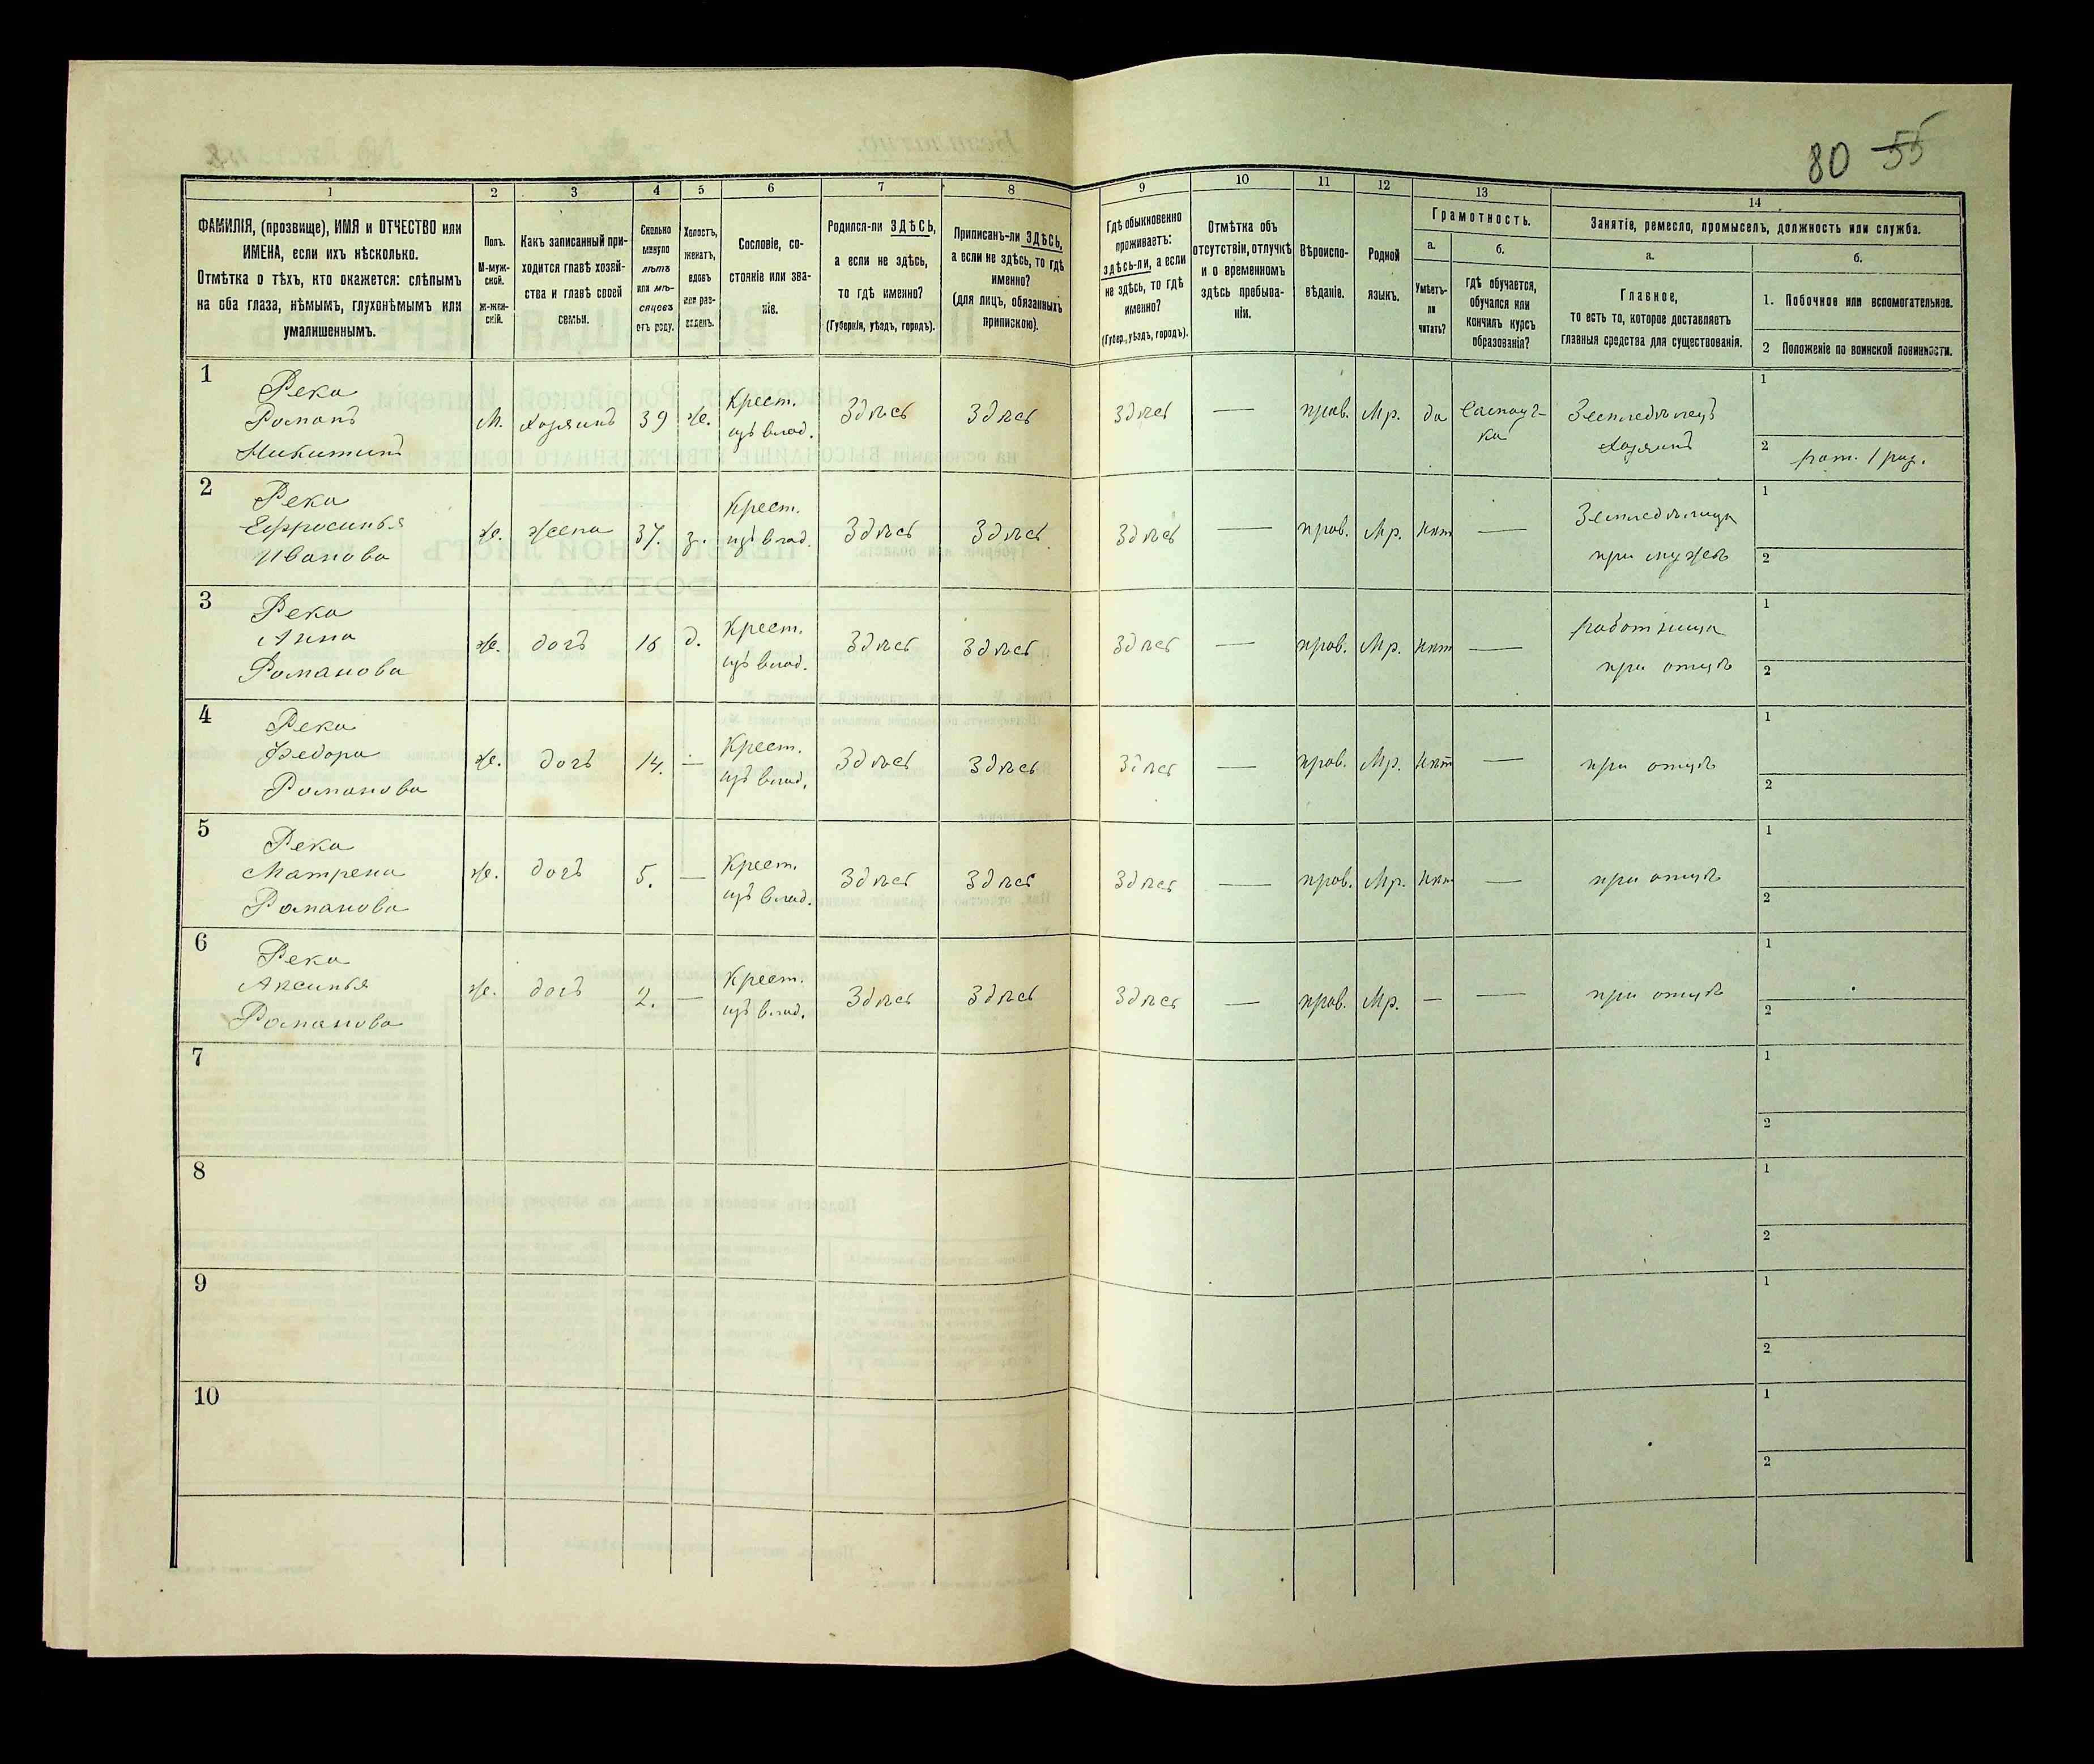 80 55
1 2 3 4 5 6 7 8 9 10 11 12 13 14
ФАМИЛІЯ, (прозвище), ИМЯ и ОТЧЕСТВО или
ИМЕНА, если ихъ нѣсколько.
Отмѣтка о тѣхъ, кто окажется: слѣпымъ
на оба глаза, нѣмымъ, глухонѣмымъ или
умалишеннымъ.
Полъ.
М-муж-
ской.
Ж-жен-
скій.
Какъ записанный при-
ходится главѣ хозяй-
ства и главѣ своей
семьи.
Сколько
минуло
лѣтъ
или мѣ-
сяцевъ
отъ роду.
Холостъ,
женатъ,
вдовъ
или раз-
веденъ.
Сословіе, со-
стояніе или зва-
ніе.
Родился-ли ЗДѢСЬ,
а если не здѣсь,
то гдѣ именно?
(Губернія, уѣздъ, городъ).
Приписанъ-ли ЗДѢСЬ,
а если не здѣсь, то гдѣ
именно?
(для лицъ, обязанныхъ
припискою).
Гдѣ обыкновенно
проживаетъ:
здѣсь-ли, а если
не здѣсь, то гдѣ
именно?
(Губер., уѣздъ, городъ).
Отмѣтка объ
отсутствіи, отлучкѣ
и о временномъ
здѣсь пребыва-
ніи.
Вѣроиспо-
вѣданіе.
Родной
языкъ.
Грамотность.
а.
Умѣетъ-
ли
читать?
б.
гдѣ обучается,
обучался или
кончилъ курсъ
образованія?
Занятіе, ремесло, промыселъ, должность или служба.
а.
Главное,
то есть то, которое доставляетъ
главныя средства для существованія.
б.
1. Побочное или вспомогательное.
2 Положеніе по воинской повинности.
1 Река
Романъ
Никитинъ
М. Хозяинъ 39 ж. Крест.
изъ влад.
Здѣсь Здѣсь Здѣсь — прав. Мр. да Самоуч-
ка
Земледѣлецъ
Хозяинъ
1
2 рат. 1 раз.
2 Река
Ефросинья
Иванова
ж. жена 37. з. Крест.
изъ влад.
Здѣсь Здѣсь Здѣсь — прав. Мр. нѣт —
при мужѣ
1
2
3 Река
Анна
Романова
ж. дочь 16 д. Крест.
изъ влад.
Здѣсь Здѣсь Здѣсь — прав. Мр. нѣт —
работница
при отцѣ
1
2
4 Река
Федора
Романова
ж. дочь 14. — Крест.
изъ влад.
Здѣсь Здѣсь Здѣсь — прав. Мр. нѣт —
при отцѣ
1
2
5 Река
Матрена
Романова
ж. дочь 5. — Крест.
изъ влад.
Здѣсь Здѣсь Здѣсь — прав. Мр. нѣт —
при отцѣ
1
2
6 Река
Аксинья
Романова
ж. дочь 2. — Крест.
изъ влад.
Здѣсь Здѣсь Здѣсь — прав. Мр. — —
при отцѣ
1
2
7
1
2
8
1
2
9
1
2
10
1
2